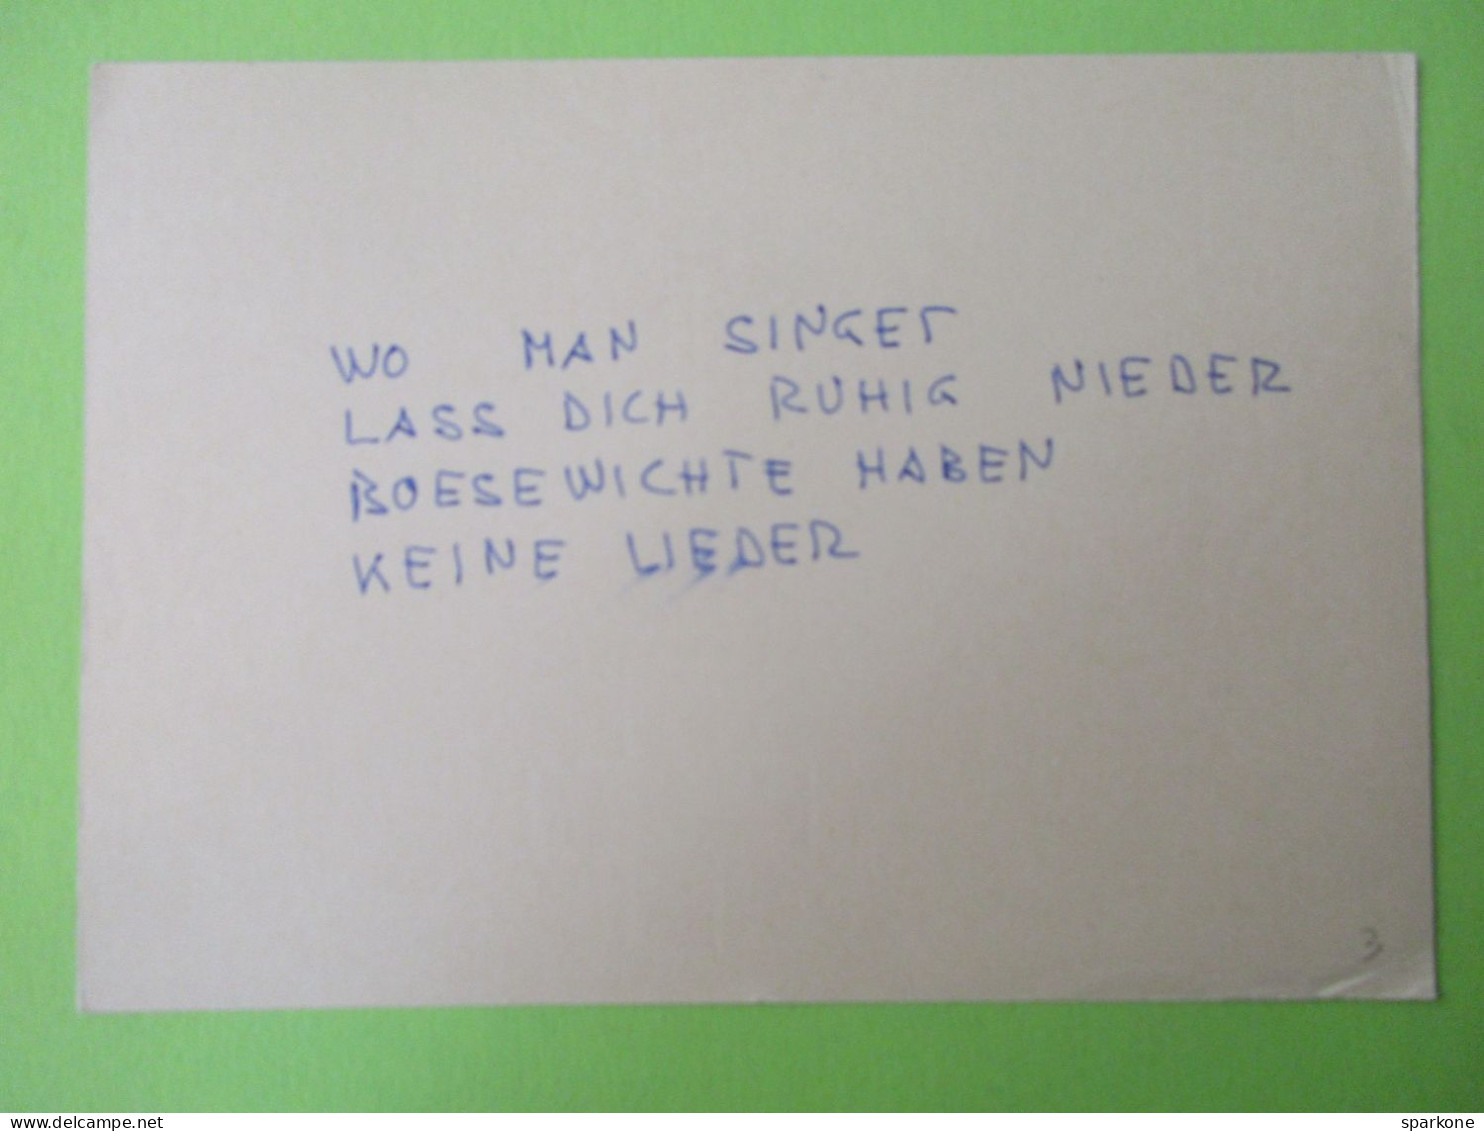 WO MAN SINGET
LASS DICH RUHIG NIEDER
BOESEWICHTE HABEN
KEINE LIEDER
3
www.delcampe.net
sparkone